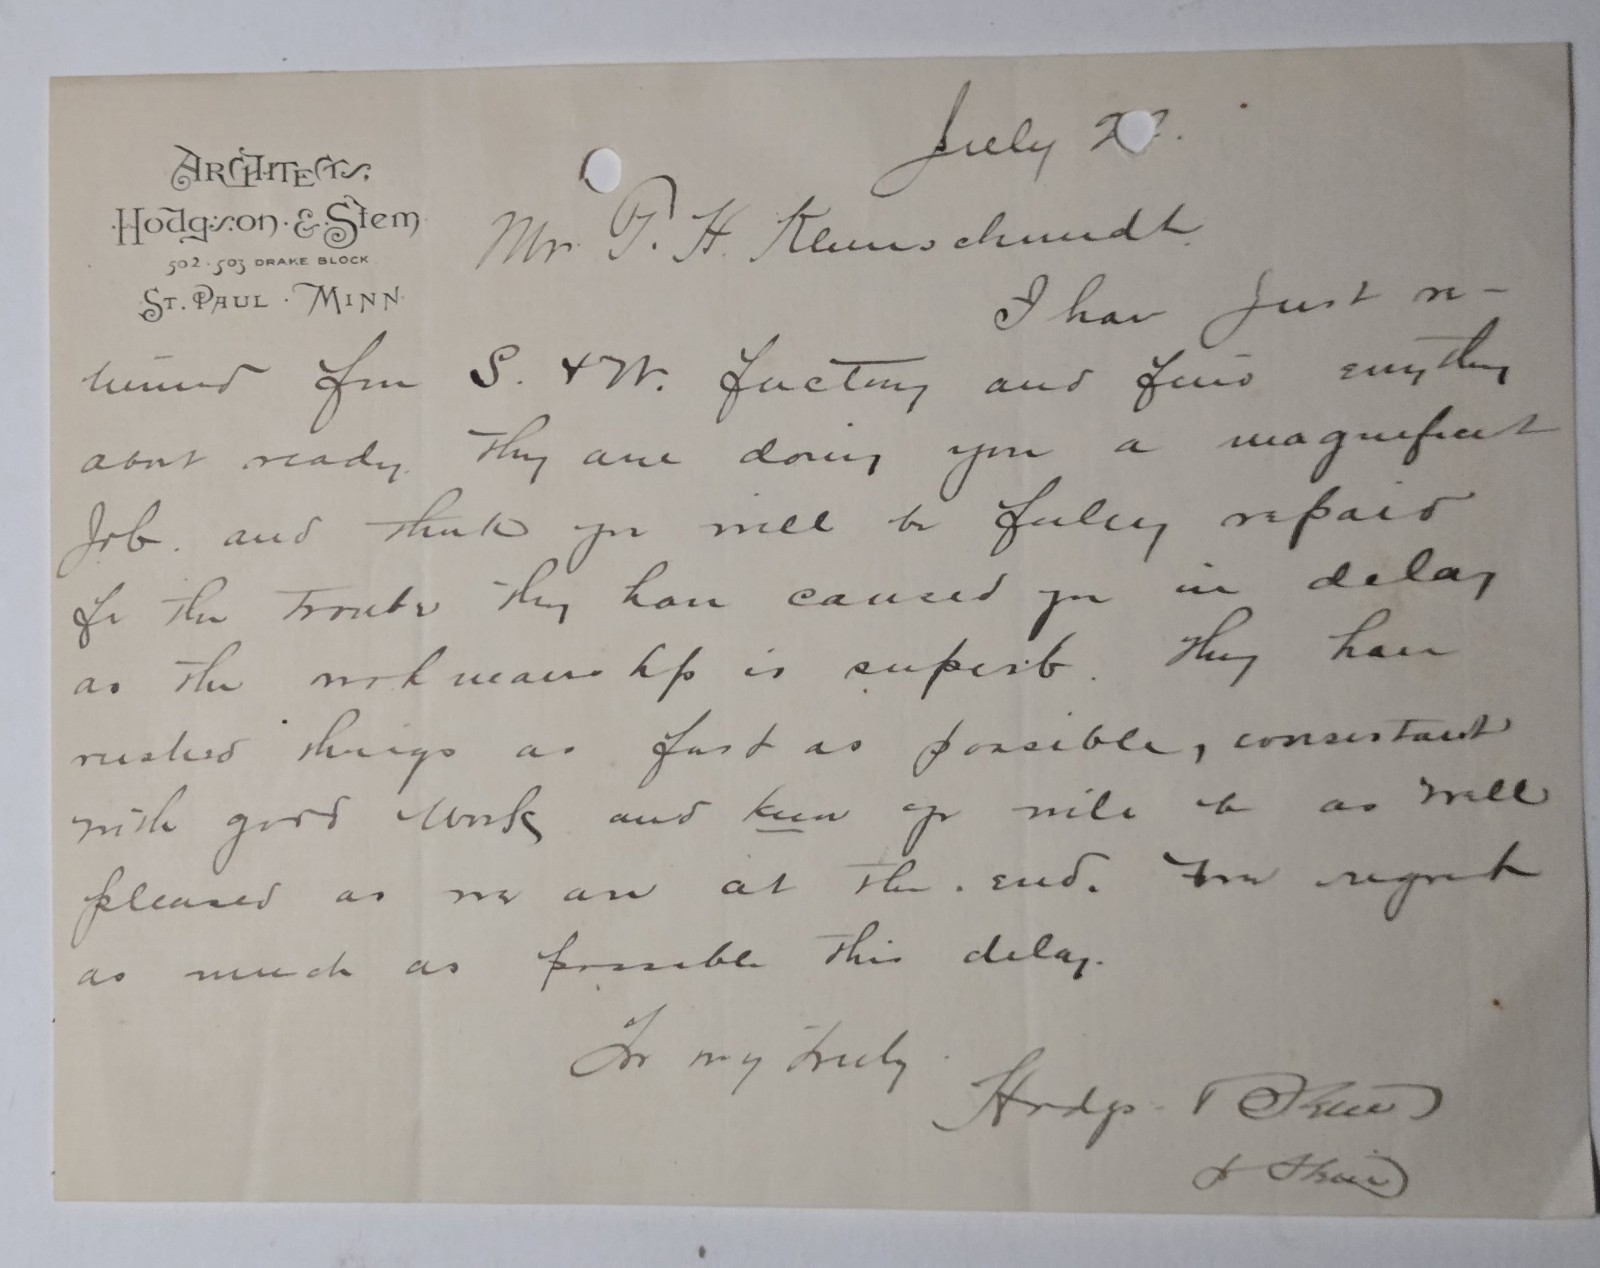 July 2
ARCHITECTS,
HODGSON & STEM
502-503 DRAKE BLOCK
ST. PAUL · MINN
Mr. T. H. Kleinschmidt
I have just re-
turned from S. & W. factory and find everything
about ready. They are doing you a magnificent
Job. and think you will be fully repaid
for the trouble they have caused you in delay
as the workmanship is superb. They have
rushed things as fast as possible, consistant
with good work and know you will be as well
pleased as we are at the end. we regret
as much as possible this delay.
Yr very truly
Hodgson & Stem